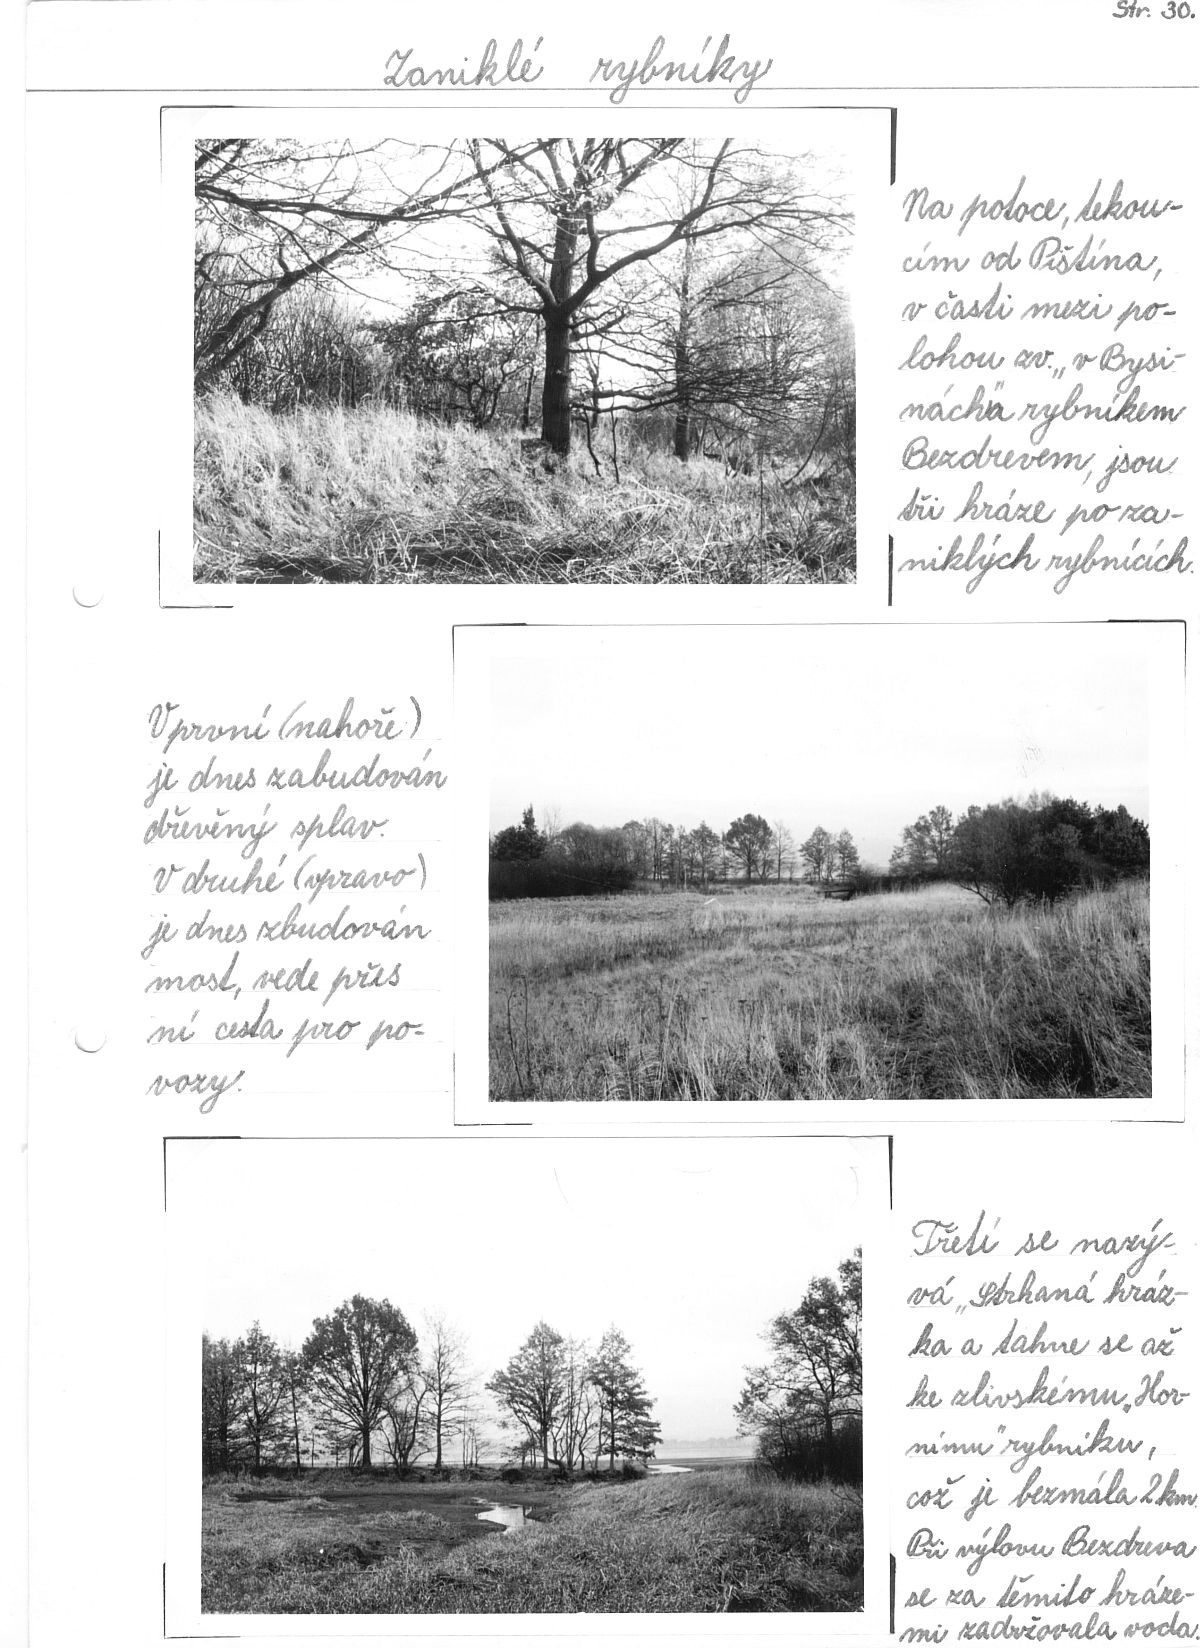 Str. 30.
Zaniklé rybníky
Na potoce, tekou-
cím od Pištína,
v časti mezi po-
lohou zv. „v Bysi-
nách“a rybníkem
Bezdrevem, jsou
tři hráze po za-
niklých rybnících.
V první (nahoře)
je dnes zabudován
dřevěný splav.
V druhé (vpravo)
je dnes zbudován
most, vede přes
ní cesta pro po-
vozy.
Třetí se nazý-
vá „Strhaná hráz-
ka a táhne se až
ke zlivskému „Hor-
nímu“ rybníku,
což je bezmála 2 km.
Při výlovu Bezdreva
se za těmito hráze-
mi zadržovala voda.